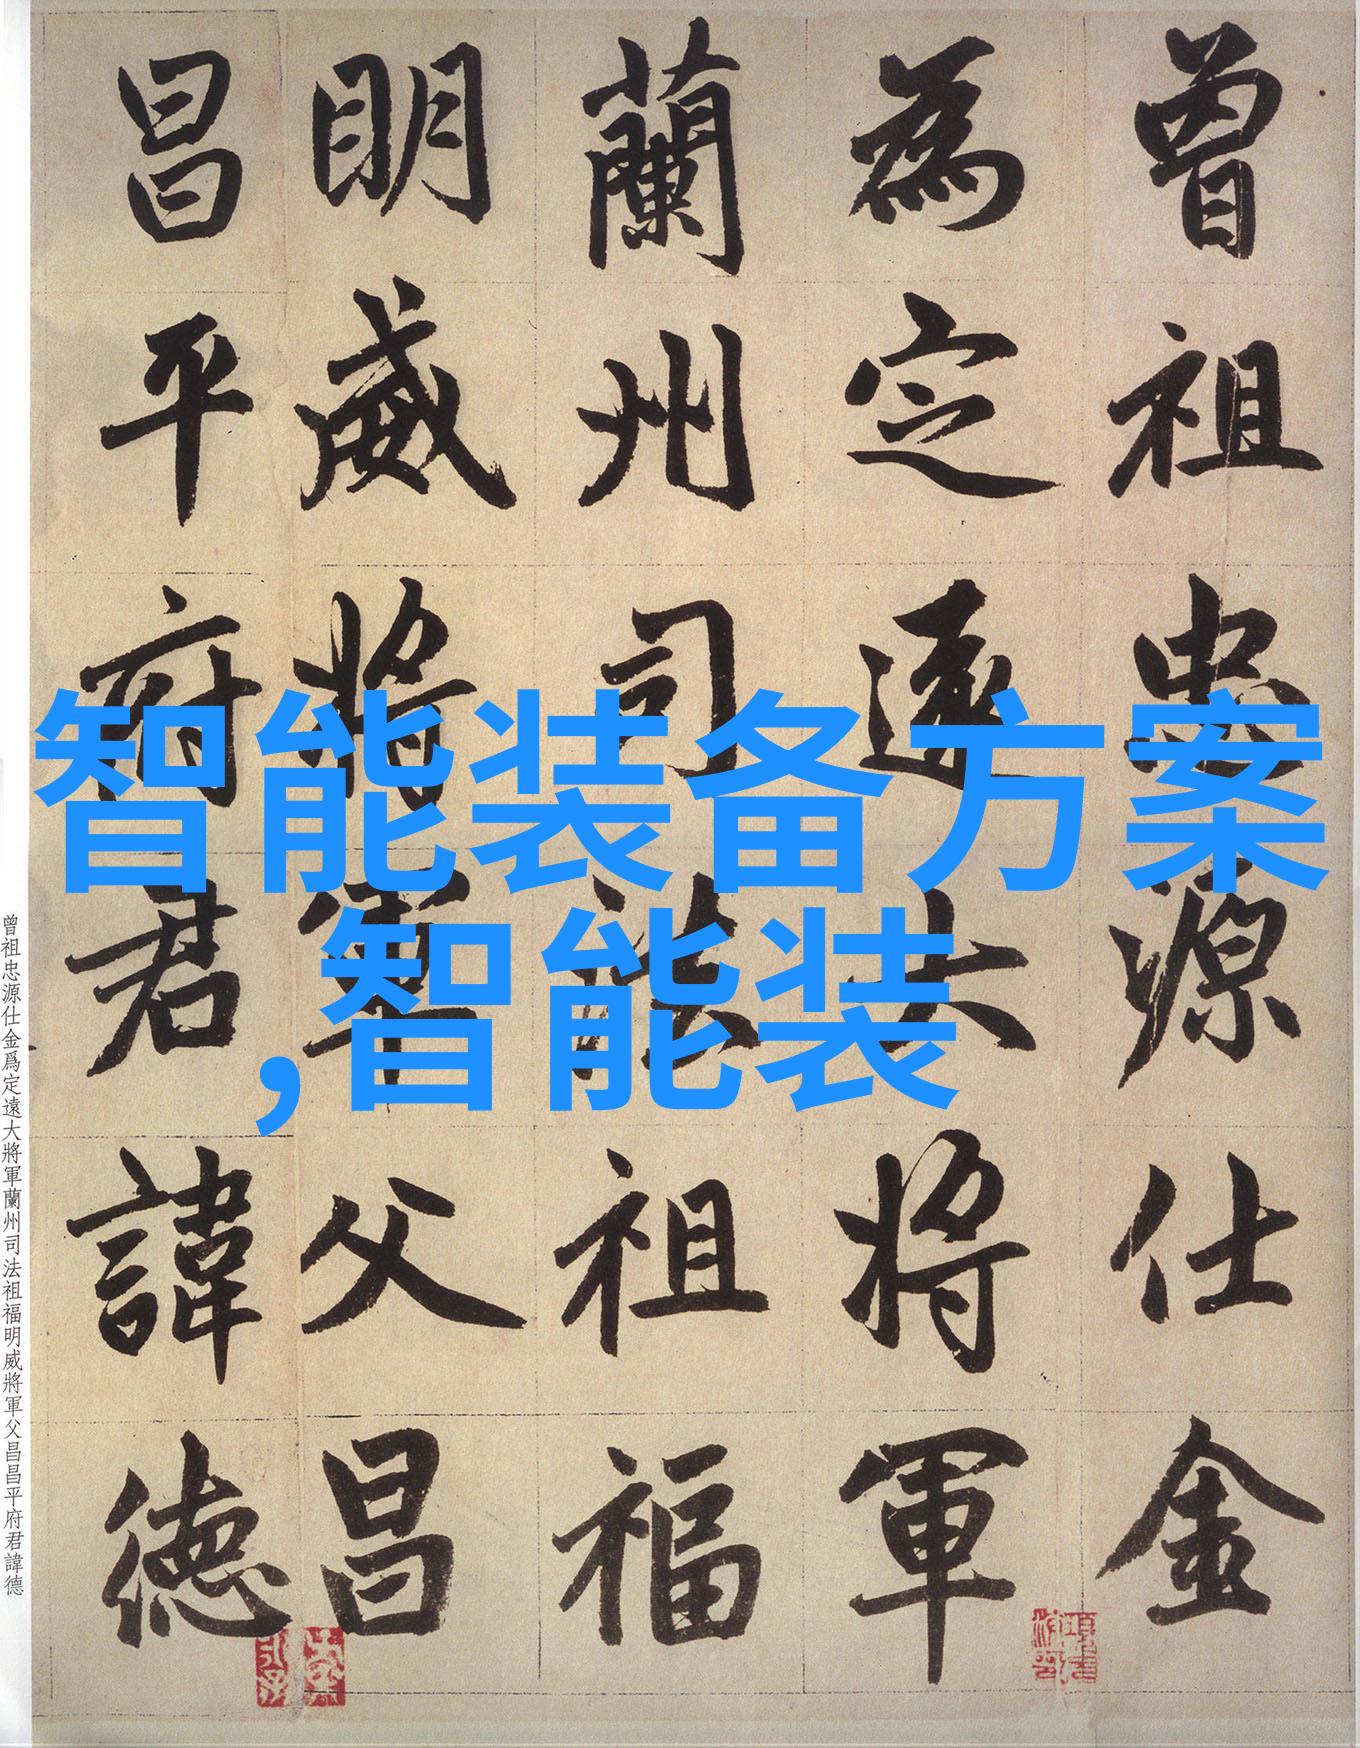 曾祖忠源仕金
為定遠大將軍
蘭州司法祖福
明威將軍父昌
昌平府君諱德
智能装备方案
,智能装
曾祖忠源仕金爲定遠大將軍蘭州司法祖福明威將軍父昌昌平府君諱德